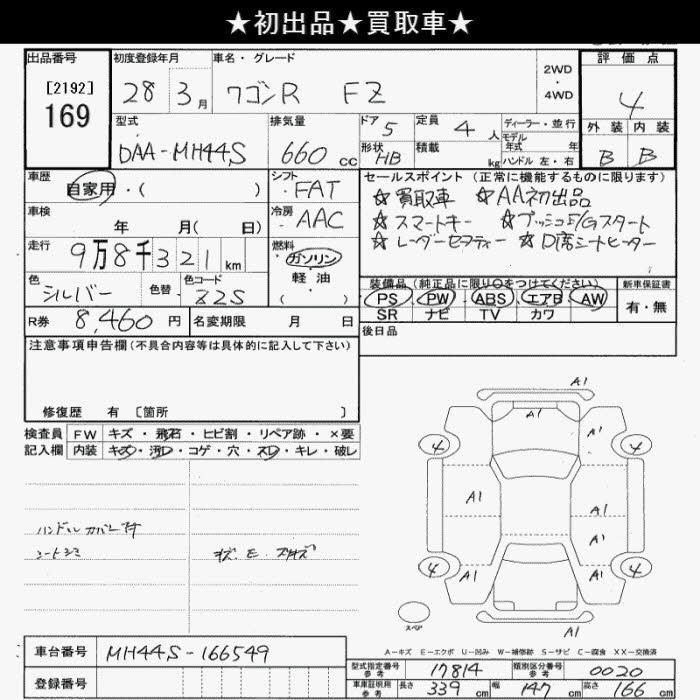 ★初出品★買取車★
出品番号
[2192]
169
初度登録年月
28 3月
車名・グレード
ワゴンR FZ
2WD
・
4WD
評価点
4
外装 内装
B B
型式
DAA-MH44S
排気量
660 cc
ドア 5
形状 HB
定員 4 人
積載 kg
ディーラー・並行
モデル年式 年
ハンドル 左・右
車歴
自家用・( )
シフト
・FAT
車検
年 月( 日)
冷房
AAC
走行
9万8千321km
燃料
ガソリン
軽油
( )
色
シルバー
色替
色コード
Z2S
R券 8,460円
名変期限 月 日
セールスポイント(正常に機能するものに限ります)
☆買取車 ☆AA初出品
☆スマートキー ☆プッシュE/Gスタート
☆レーダーセフティー ☆D席シートヒーター
装備品(純正品に限り○をつけてください)
PS PW ABS エアB AW
SR ナビ TV カワ
新車保証書
有・無
後日品
注意事項申告欄(不具合内容等は具体的に記入して下さい)
修復歴 有 〔箇所 〕
検査員 FW キズ・飛石・ヒビ割・リペア跡・×要
記入欄 内装 キズ・汚レ・コゲ・穴・スレ・キレ・破レ
ハンドルカバー付
シートシミ
A1
A1
A1
4 4
A1 A1
A1
4 A1 A1 4
スペア
A-キズ E-エクボ U-凹み W-補修跡 S-サビ C-腐食 XX-交換済
車台番号 MH44S-166549
登録番号
型式指定番号 参考 17814
類別区分番号 参考 0020
車庫証明用 参考 長さ 339cm 幅 147cm 高さ 166cm